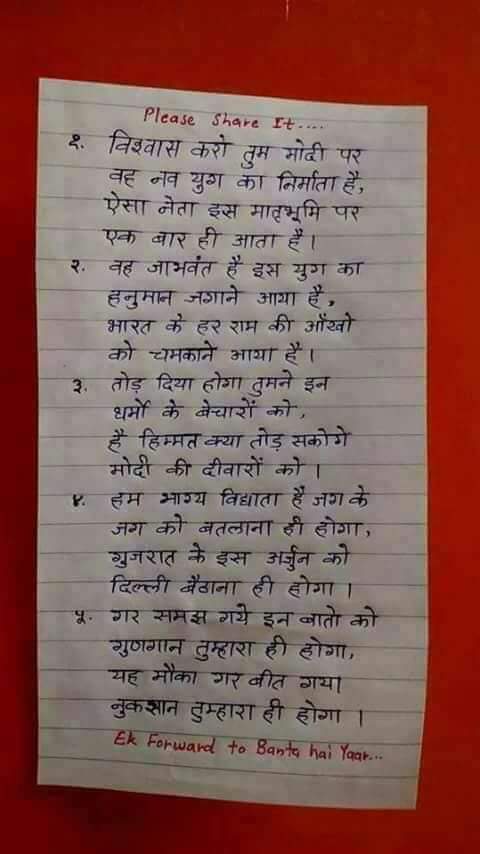 Please Share It....
१. विश्वास करो तुम मोदी पर
वह नव युग का निर्माता है,
ऐसा नेता इस मातृभूमि पर
एक बार ही आता है।
२. वह जाभवंत है इस युग का
हनुमान जगाने आया है,
भारत के हर राम की आँखो
को चमकाने आया है।
३. तोड़ दिया होगा तुमने इन
धर्मो के बेचारों को,
है हिम्मत क्या तोड़ सकोगे
मोदी की दीवारों को।
४. हम भाग्य विद्याता है जग के
जग को बतलाना ही होगा,
गुजरात के इस अर्जुन को
दिल्ली बैठाना ही होगा।
५. गर समझ गये इन बातो को
गुणगान तुम्हारा ही होगा,
यह मौका गर बीत गया
नुकशान तुम्हारा ही होगा।
Ek Forward to Banta hai Yaar...